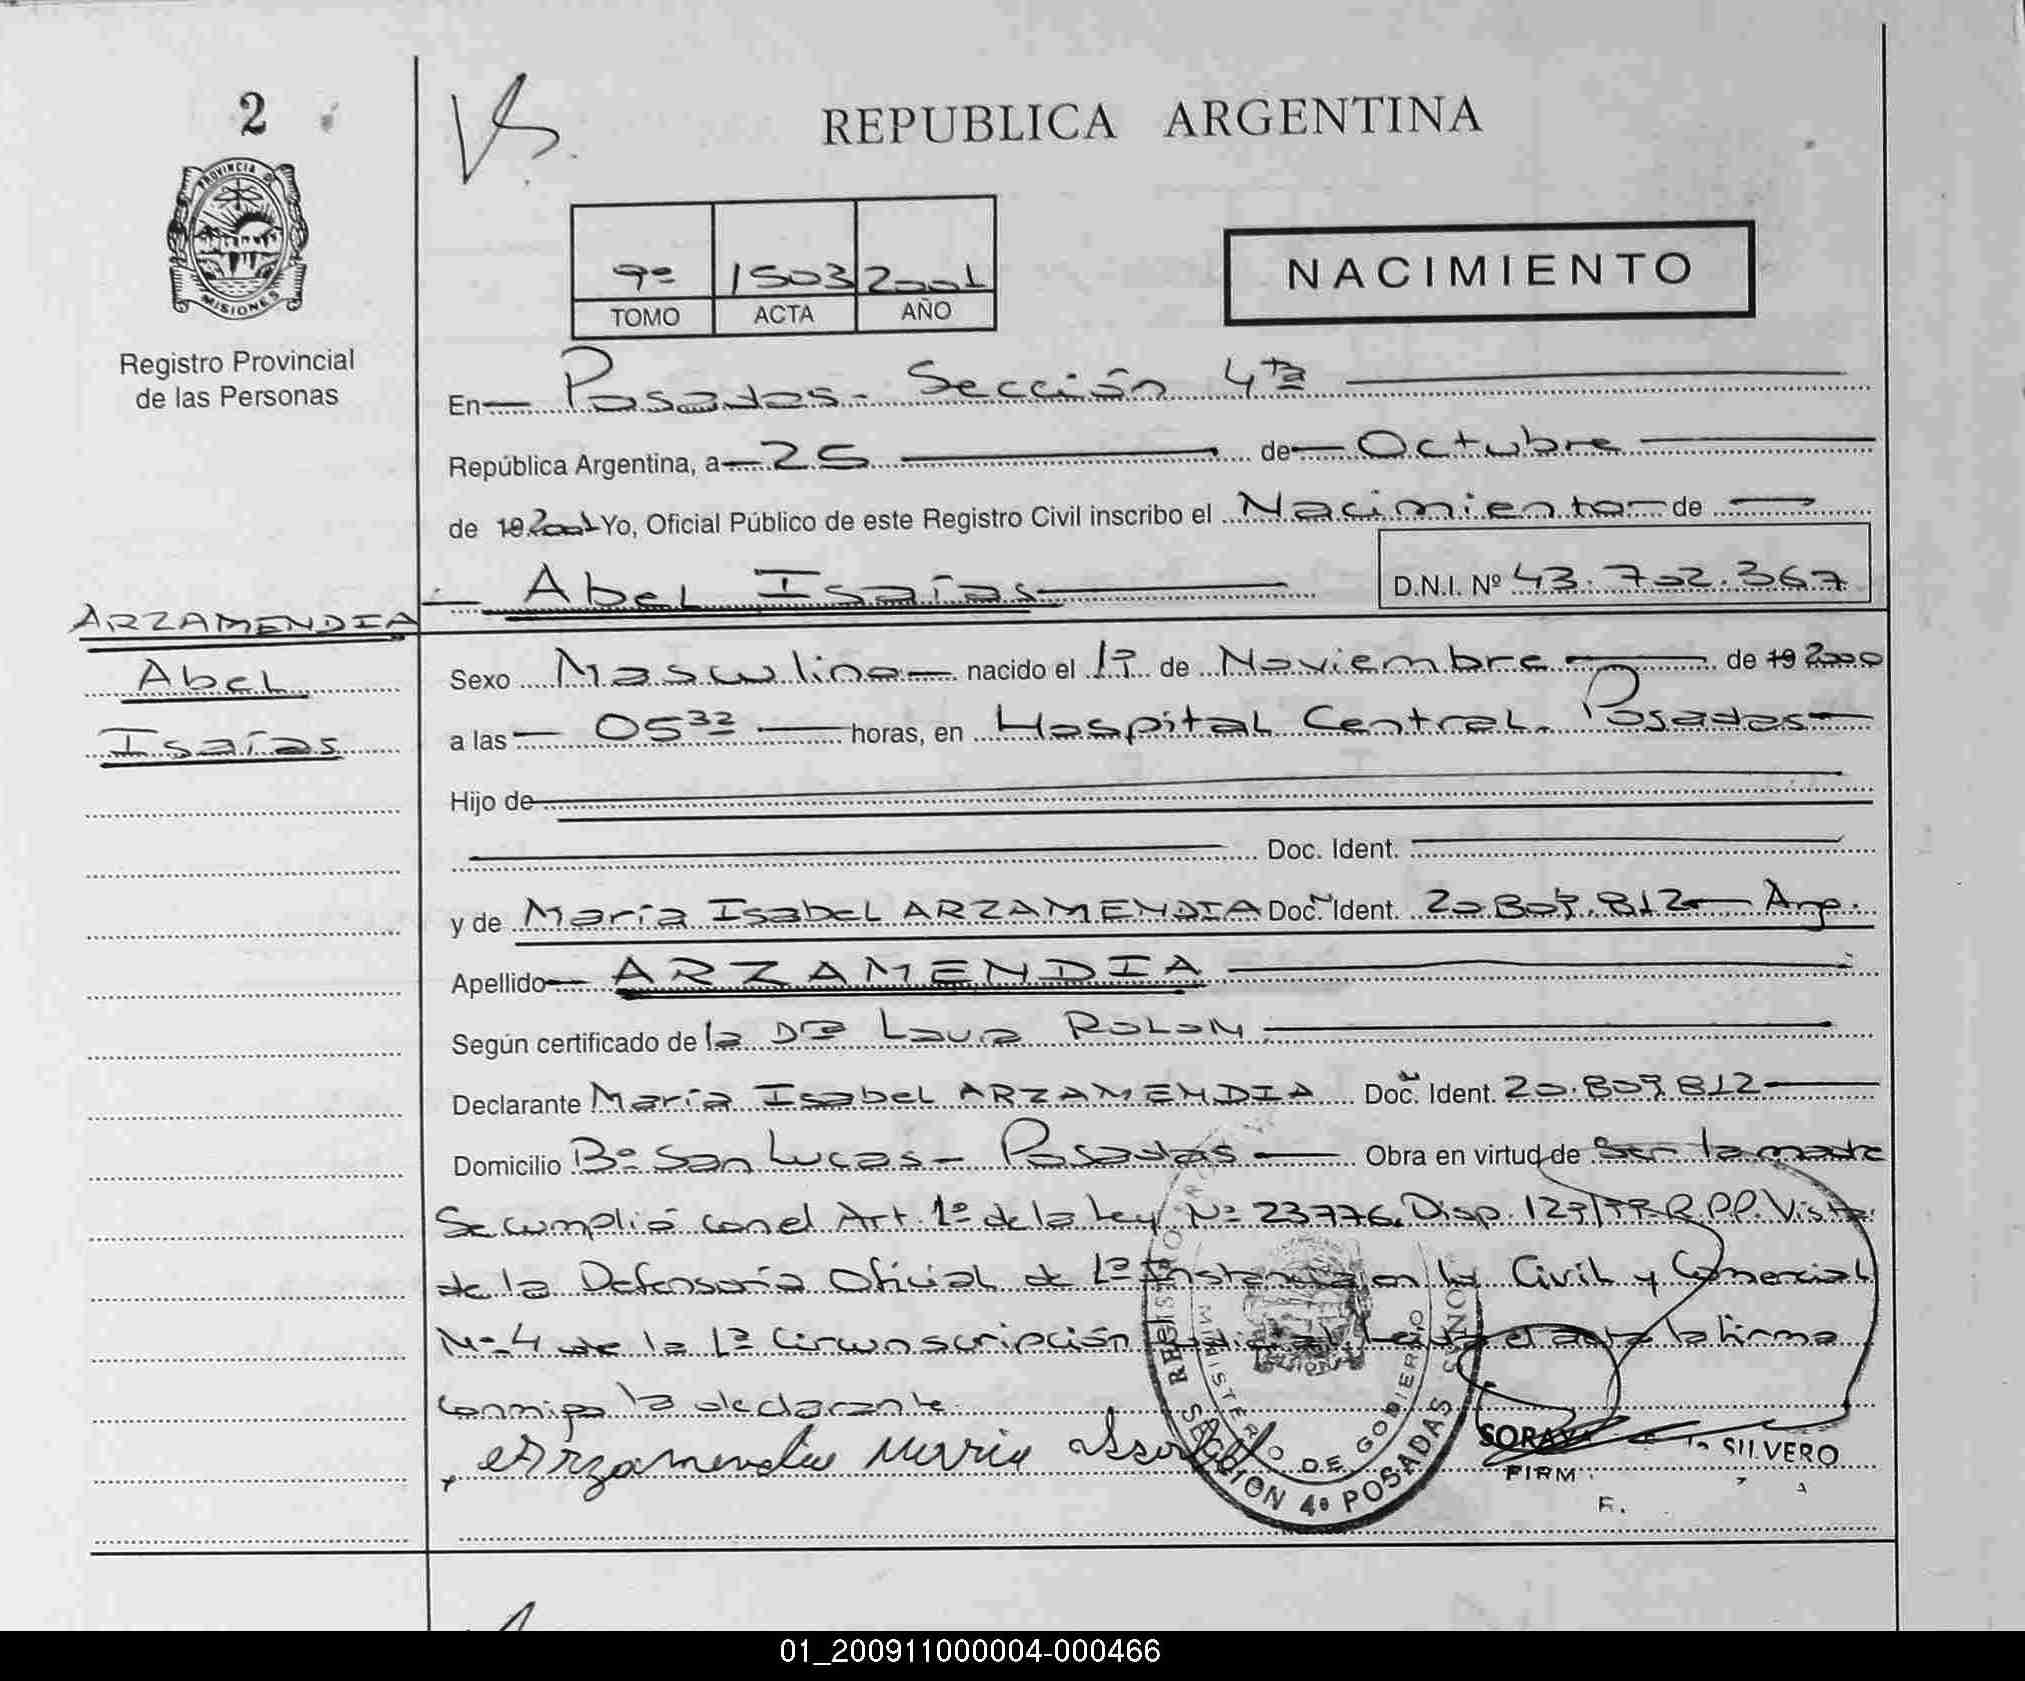 2
VS.
REPUBLICA ARGENTINA
PROVINCIA DE
MISIONES
Registro Provincial
de las Personas
9º 1503 2001
TOMO ACTA AÑO
NACIMIENTO
En Posadas - Sección 4ta
República Argentina, a 25 de Octubre
de 19 2001 Yo, Oficial Público de este Registro Civil inscribo el Nacimiento de
Abel Isaías D.N.I. Nº 43.702.367
ARZAMENDIA
Abel
Isaías
Sexo Masculino nacido el 1º de Noviembre de 19 2000
a las 05 32 horas, en Hospital Central. Posadas
Hijo de
Doc. Ident.
y de María Isabel ARZAMENDIA Doc. Ident. 20.809.812 Arg.
Apellido ARZAMENDIA
Según certificado de la Dra Laura ROLON
Declarante María Isabel ARZAMENDIA Doc. Ident. 20.809.812
Domicilio Bº San Lucas - Posadas Obra en virtud de ser la madre
Se cumplió con el Art. 1º de la Ley Nº 23776. Disp. 123/99 R.P.P. Vista
de la Defensoría Oficial de 1ª Instancia en lo Civil y Comercial
Nº 4 de la 1ª Circunscripción Judicial. Leída el acta la firma
conmigo la declarante
Arzamendia Maria Isabel
MINISTERIO DE GOBIERNO
SECCION 4ª POSADAS
MISIONES
SORAYA SILVERO
FIRM
01_200911000004-000466